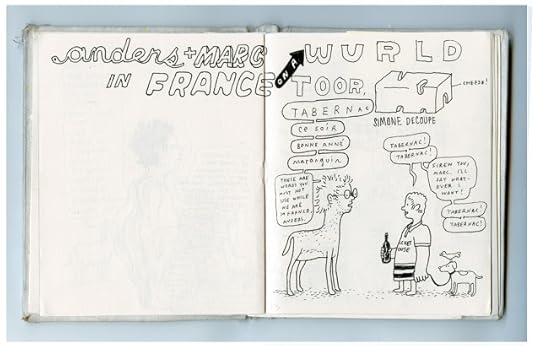 anders + MARC
IN FRANCE
ON A
WURLD
TOOR,
CHEEZE!
SIMONE DECOUPE
TABERNAC
ce soir
BONNE ANNÉ
maroquin
THESE ARE
WORDS YOU
MUST NOT
USE WHILE
WE ARE
IN FRANCE,
ANDERS.
TABERNAC!
TABERNAC!
SCREW YOU,
MARC. I'LL
SAY WHAT-
EVER I
WANT!
TABERNAC!
TABERNAC!